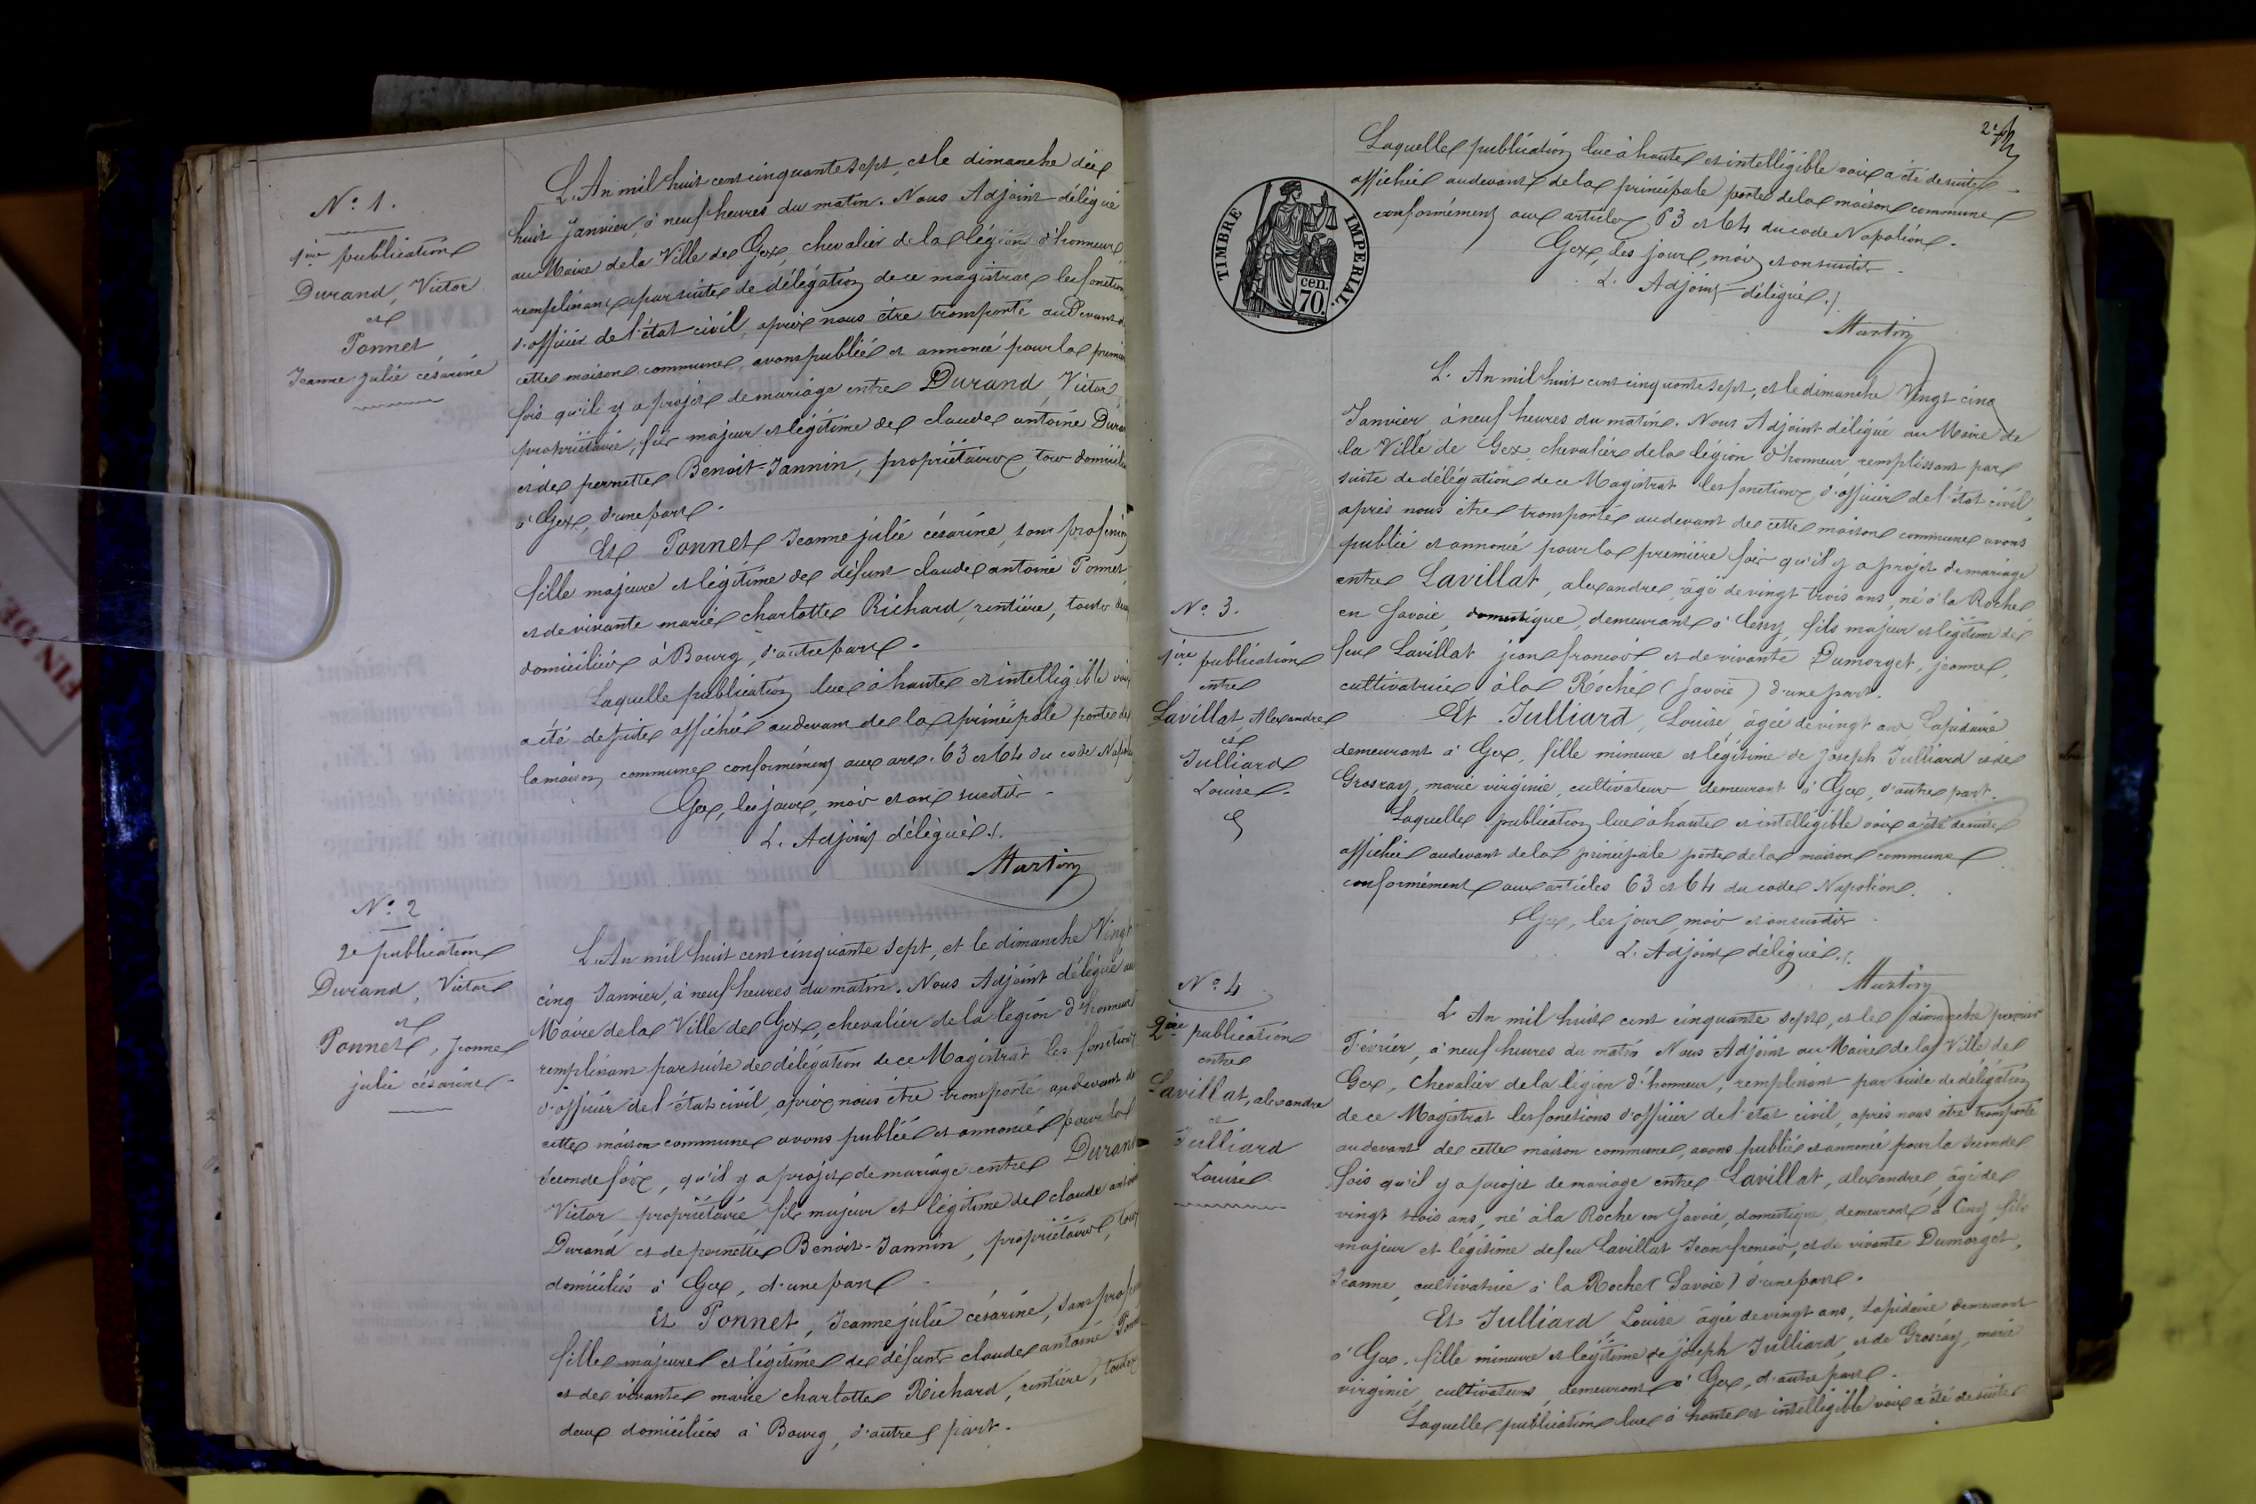 N° 1.
1ère publication
Durand, Victor
et
Ponnet
Jeanne Julie césarine
L'An mil huit cent cinquante sept, et le dimanche dix
huit Janvier, à neuf heures du matin. Nous Adjoint délégué
au Maire de la Ville de Gex, chevalier de la légion d'honneur
remplissant par suite de délégation de ce magistrat les fonctions
d'officier de l'état civil, après nous être transporté au devant de
cette maison commune, avons publié et annoncé pour la première
fois qu'il y a projet de mariage entre Durand, Victor,
propriétaire, fils majeur et légitime de claude antoine Durand
et de pernette Benoit-Jannin, propriétaires, tous domiciliés
à Gex, d'une part.
Et Ponnet Jeanne julie césarine, sans profession
fille majeure et légitime de défunt claude antoine Ponnet,
et de vivante marie charlotte Richard, rentière, toutes deux
domiciliées à Bourg, d'autre part.
Laquelle publication lue à haute et intelligible voix
a été de suite affichée au devant de la principale porte de
la maison commune conformément aux art. 63 et 64 du code Napoléon
Gex, les jour, mois et an susdits
L'Adjoint délégué ./.
Martin
N° 2
2e publication
Durand, Victor
et
Ponnet, Jeanne
julie césarine.
L'An mil huit cent cinquante sept, et le dimanche Vingt
cinq Janvier, à neuf heures du matin. Nous Adjoint délégué au
Maire de la Ville de Gex, chevalier de la légion d'honneur
remplissant par suite de délégation de ce Magistrat les fonctions
d'officier de l'état civil, après nous être transporté au devant de
cette maison commune avons publié et annoncé pour la
seconde fois, qu'il y a projet de mariage entre Durand
Victor, propriétaire, fils majeur et légitime de claude antoine
Durand et de pernette Benoit-Jannin, propriétaires, tous
domiciliés à Gex, d'une part.
Et Ponnet, Jeanne julie césarine, sans profession
fille majeure et légitime de défunt claude antoine Ponnet
et de vivante marie charlotte Richard, rentière, toutes
deux domiciliées à Bourg, d'autre part.
2e
Laquelle publication lue à haute et intelligible voix a été de suite
affichée au devant de la principale porte de la maison commune
conformément aux articles 63 et 64 du code Napoléon.
Gex, les jour, mois et an susdits
L'Adjoint délégué ./.
Martin
TIMBRE IMPERIAL.
cen.
70.
N° 3.
1ère publication
entre
Lavillat, Alexandre
et
Julliard
Louise.
L'An mil huit cent cinquante sept, et le dimanche Vingt cinq
Janvier, à neuf heures du matin. Nous Adjoint délégué au Maire de
la Ville de Gex, chevalier de la légion d'honneur, remplissant par
suite de délégation de ce Magistrat les fonctions d'officier de l'état civil,
après nous être transporté au devant de cette maison commune avons
publié et annoncé pour la première fois qu'il y a projet de mariage
entre Lavillat, alexandre, âgé de vingt trois ans, né à la Roche
en Savoie, domestique, demeurant à Cessy, fils majeur et légitime de
feu Lavillat jean françois et de vivante Dumorget, jeanne,
cultivatrice à la Roche (Savoie) d'une part.
Et Julliard, Louise, âgée de vingt ans Lapidaire
demeurant à Gex, fille mineure et légitime de Joseph Julliard et de
Grosray, marie virginie, cultivateurs, demeurant à Gex, d'autre part.
Laquelle publication lue à haute et intelligible voix a été de suite
affichée au devant de la principale porte de la maison commune
conformément aux articles 63 et 64 du code Napoléon.
Gex, les jour, mois et an susdits
L'Adjoint délégué ./.
Martin
N° 4
2ème publication
entre
Lavillat, alexandre
et
Julliard
Louise
L'An mil huit cent cinquante sept, et le dimanche premier
Février, à neuf heures du matin Nous Adjoint au Maire de la Ville de
Gex, chevalier de la légion d'honneur, remplissant par suite de délégation
de ce Magistrat les fonctions d'officier de l'état civil, après nous être transporté
au devant de cette maison commune, avons publié et annoncé pour la seconde
fois qu'il y a projet de mariage entre Lavillat, alexandre, âgé de
vingt trois ans, né à la Roche en Savoie, domestique, demeurant à Cessy, fils
majeur et légitime de feu Lavillat Jean françois, et de vivante Dumorget,
Jeanne, cultivatrice à la Roche (Savoie) d'une part.
Et Julliard Louise âgée de vingt ans, Lapidaire demeurant
à Gex, fille mineure et légitime de joseph Julliard, et de Grosray, marie
virginie, cultivateurs, demeurant à Gex, d'autre part.
Laquelle publication lue à haute et intelligible voix a été de suite